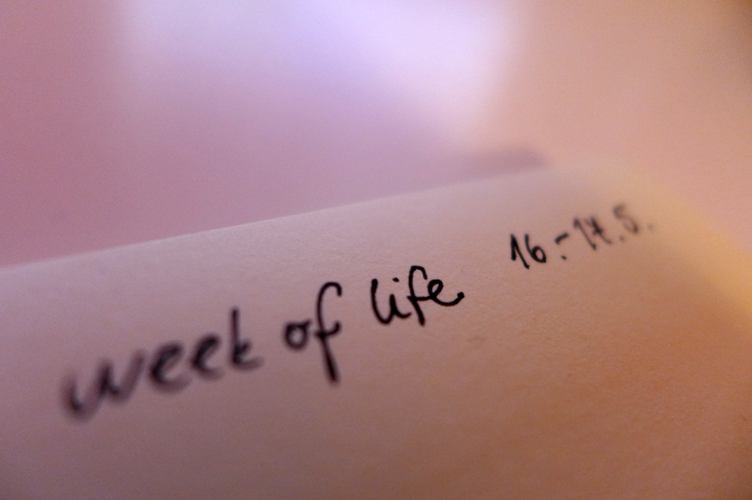 week of life 16.-17.5.